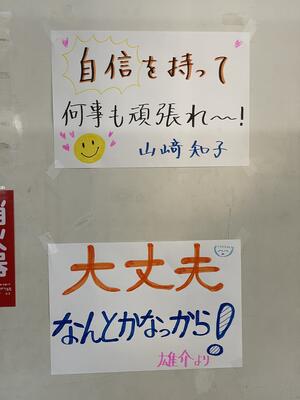 自信を持って
何事も頑張れ〜!
山﨑 知子
大丈夫
なんとかなっから!
雄介より
消火器